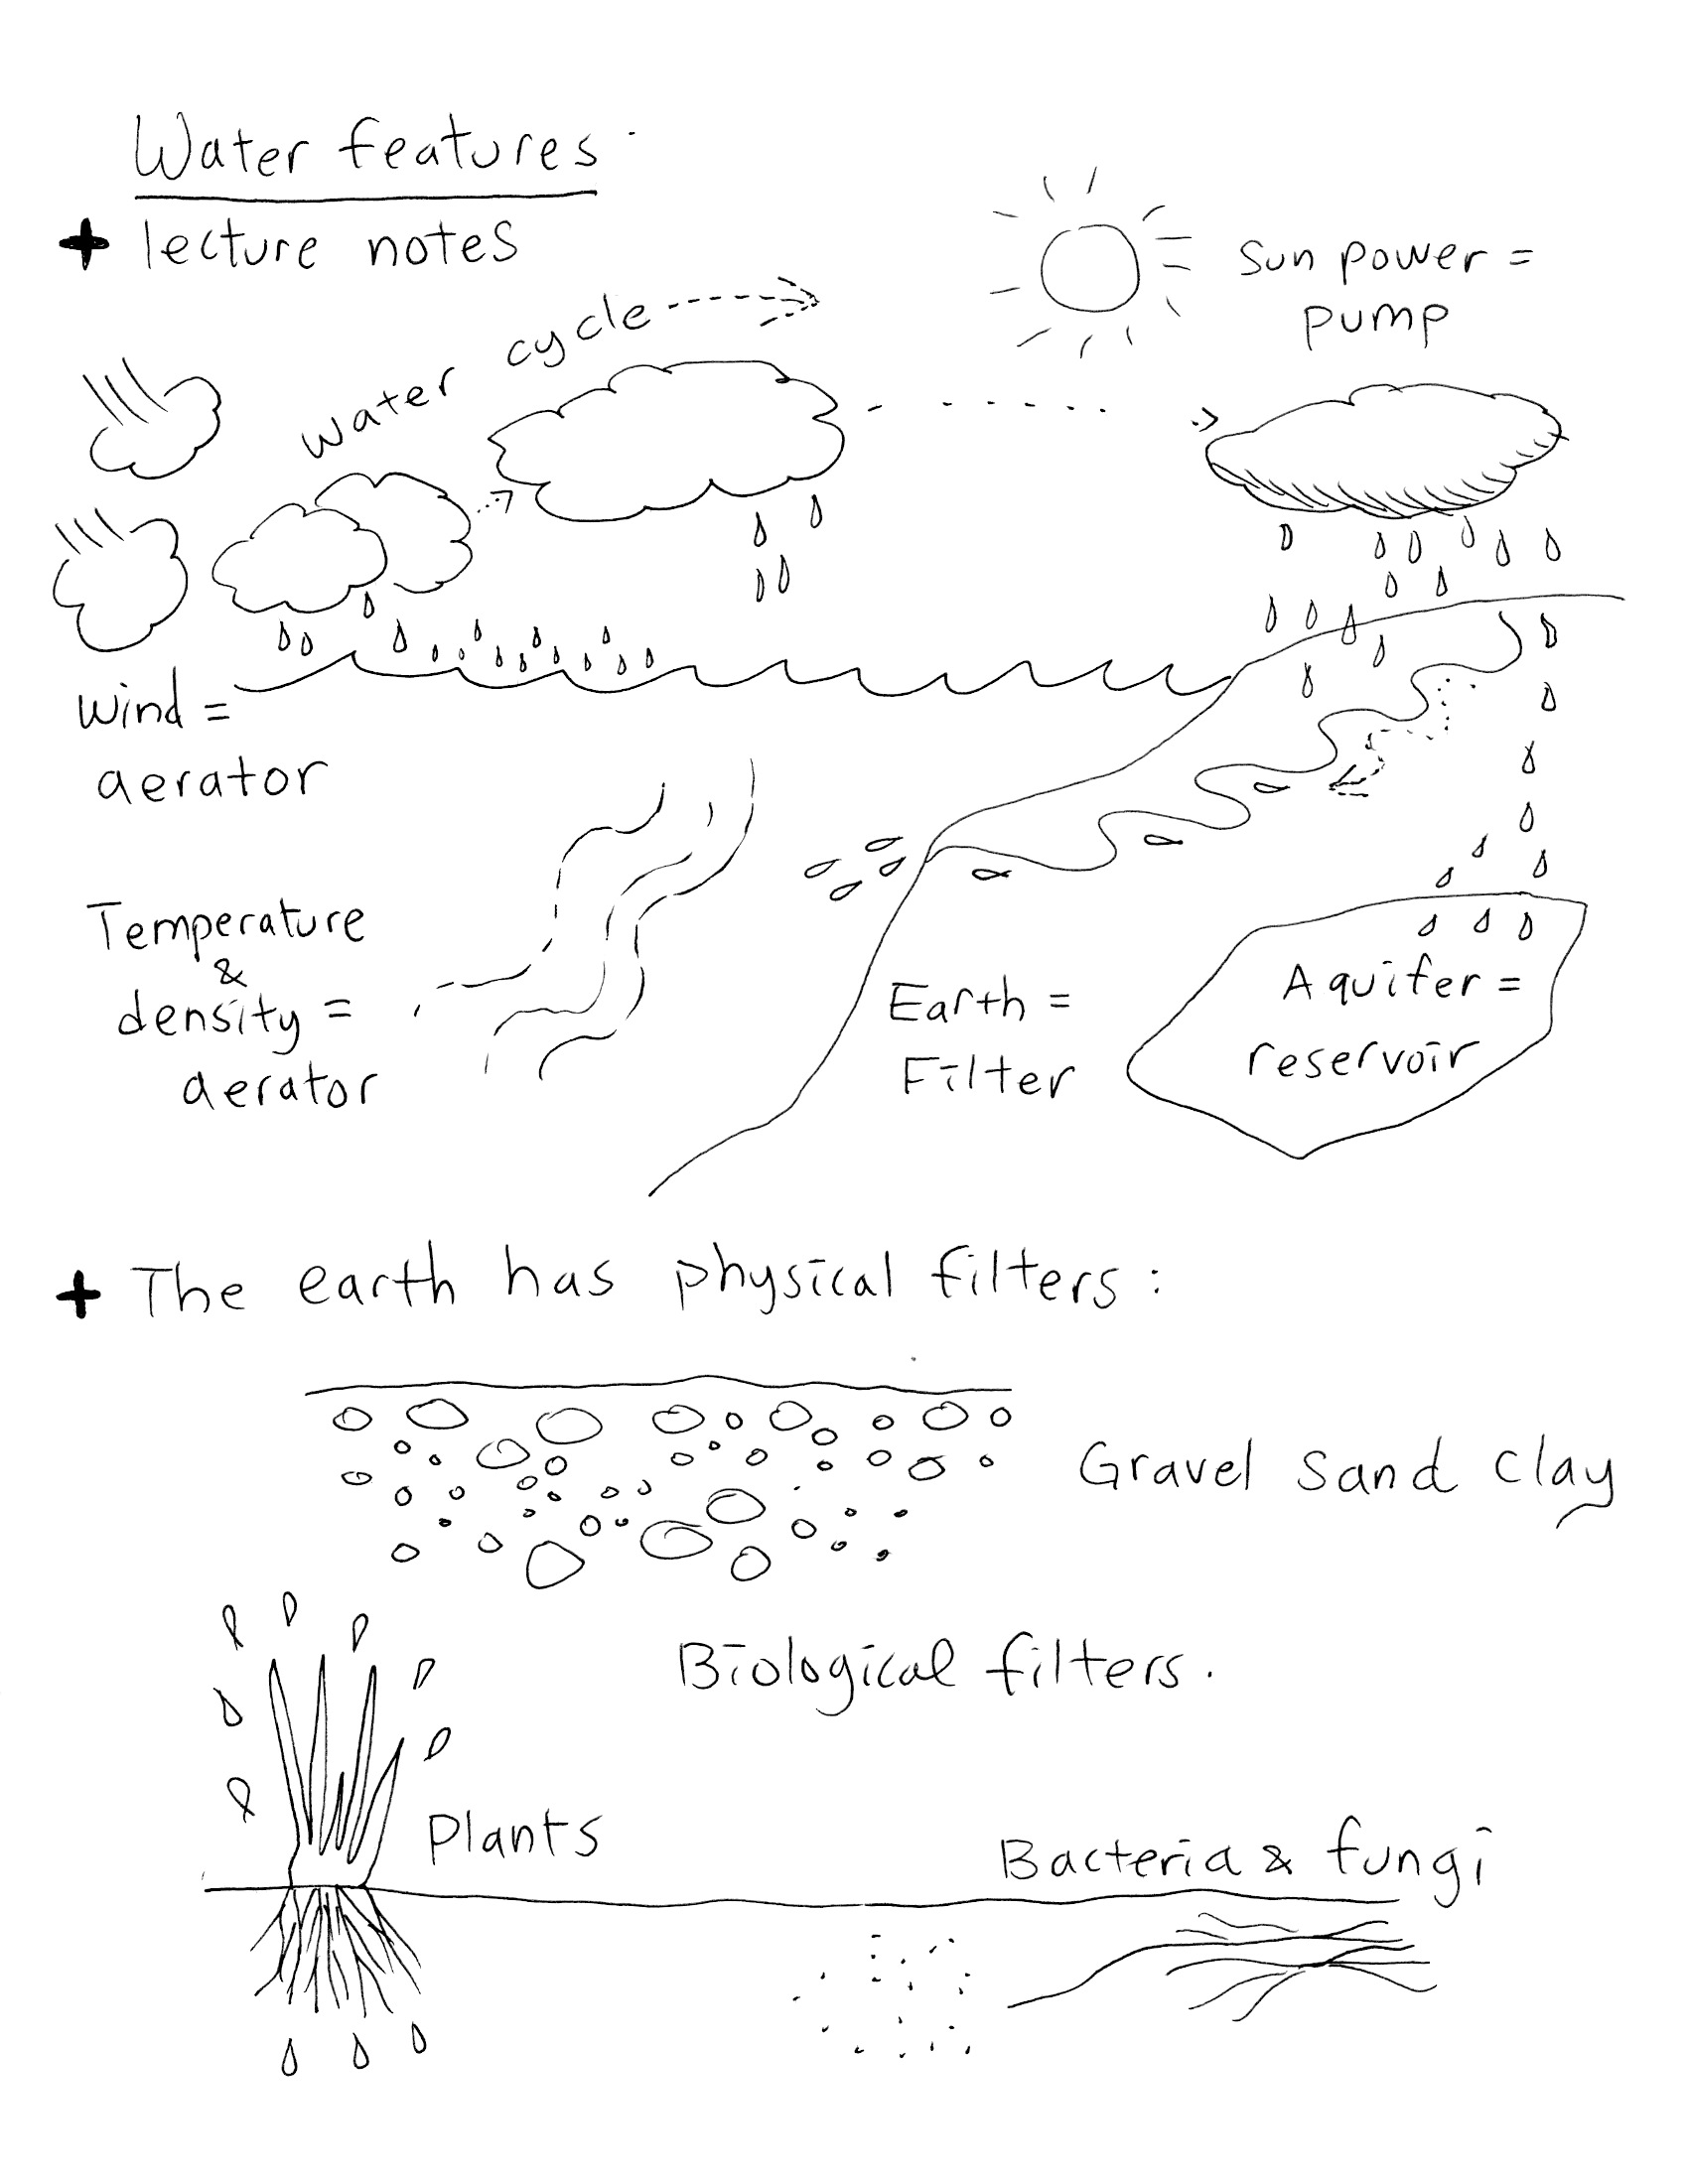 Water features
+ lecture notes
Sun power =
pump
water cycle
Wind =
aerator
Temperature
&
density =
aerator
Earth =
Filter
Aquifer =
reservoir
+ The earth has physical filters:
Gravel sand clay
Biological filters.
Plants
Bacteria & fungi